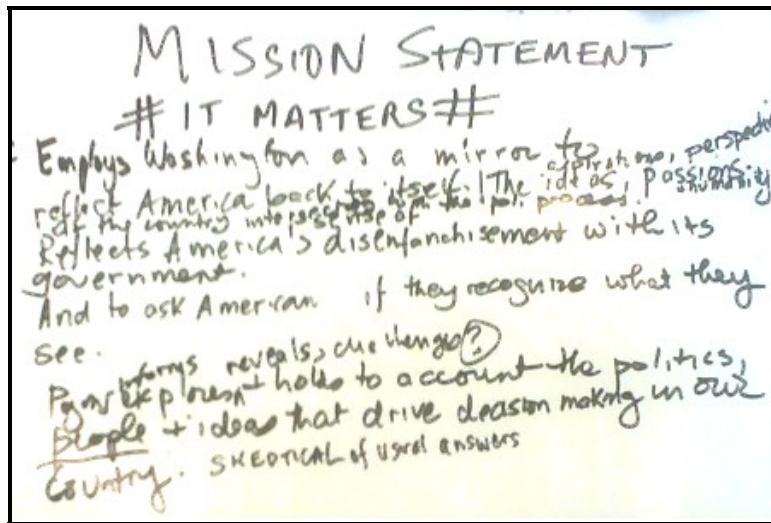 MISSION STATEMENT
# IT MATTERS #
Employs Washington as a mirror to
aspirations, perspectiv
reflect America back to itself. The ideas, passions,
humanity
of the country intersects with the poli process.
sense of
Reflects America's disenfanchisement with its
government.
And to ask American if they recognize what they
see.
informs reveals, challenges ?
explores + holds to account the politics,
people + ideas that drive decision making in our
Country. SKEPTICAL of usual answers